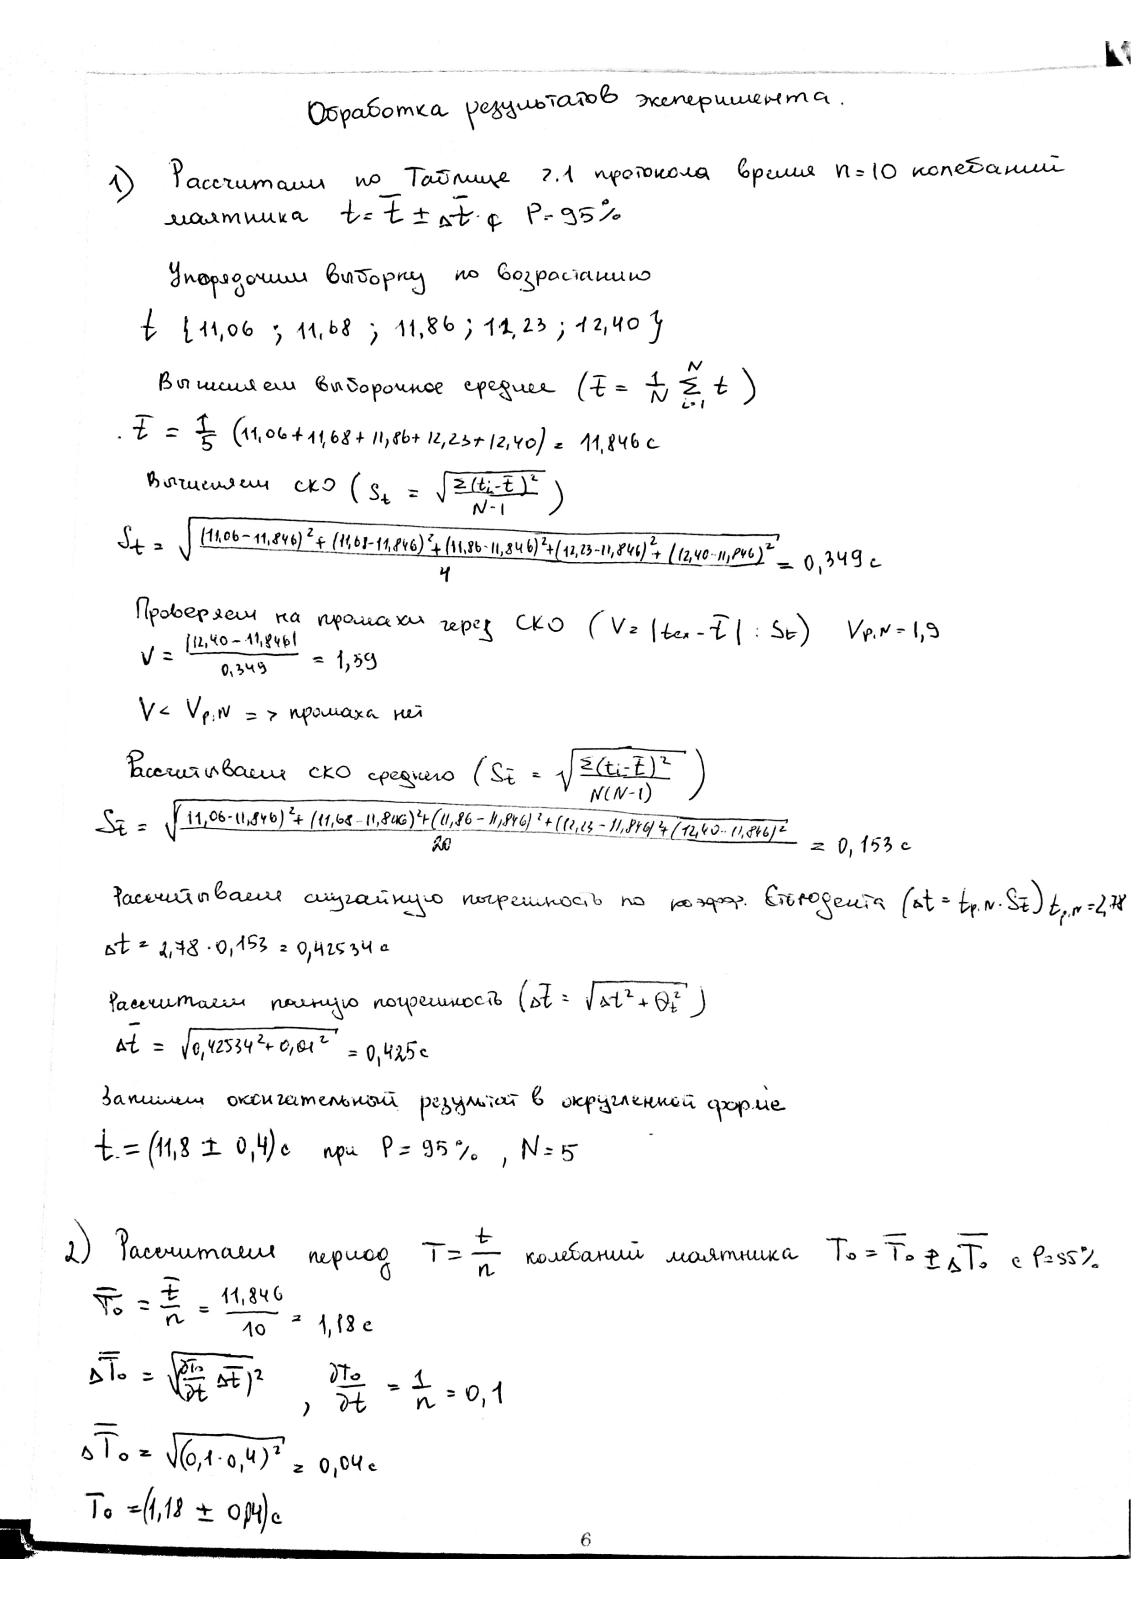 Обработка результатов эксперимента.
1) Рассчитаем по Таблице 2.1 протокола время n=10 колебаний
маятника t = t̄ ± Δt̄ с P=95%
Упорядочим выборку по возрастанию
t {11,06 ; 11,68 ; 11,86 ; 12,23 ; 12,40}
Вычисляем выборочное среднее (t̄ = 1/N Σ_{i=1}^{N} t)
t̄ = 1/5 (11,06+11,68+11,86+12,23+12,40) = 11,846 с
Вычисляем СКО (S_t = √(Σ(t_i-t̄)²/(N-1)))
S_t = √(((11,06-11,846)²+(11,68-11,846)²+(11,86-11,846)²+(12,23-11,846)²+(12,40-11,846)²)/4) = 0,349 с
Проверяем на промахи через СКО (V=|t_{}-t̄| : S_t) V_{P,N}=1,9
V = |12,40-11,846|/0,349 = 1,59
V < V_{P,N} => промаха нет
Рассчитываем СКО среднего (S_t̄ = √(Σ(t_i-t̄)²/(N(N-1))))
S_t̄ = √((11,06-11,846)²+(11,68-11,846)²+(11,86-11,846)²+(12,23-11,846)²+(12,40-11,846)²/20) = 0,153 с
Рассчитываем случайную погрешность по коэфф. Стьюдента (Δt = t_{P,N}·S_t̄) t_{P,N}=2,78
Δt = 2,78 · 0,153 = 0,42534 с
Рассчитаем полную погрешность (Δt̄ = √(Δt² + θ_t²))
Δt̄ = √(0,42534²+0,01²) = 0,425 с
Запишем окончательный результат в округленной форме
t = (11,8 ± 0,4) с при P=95%, N=5
2) Рассчитаем период T = t/n колебаний маятника T₀ = T̄₀ ± ΔT̄₀ с P=95%
T̄₀ = t̄/n = 11,846/10 = 1,18 с
ΔT̄₀ = √(∂T₀/∂t Δt̄)² , ∂T₀/∂t = 1/n = 0,1
ΔT̄₀ = √(0,1·0,4)² = 0,04 с
T₀ = (1,18 ± 0,04) с
6